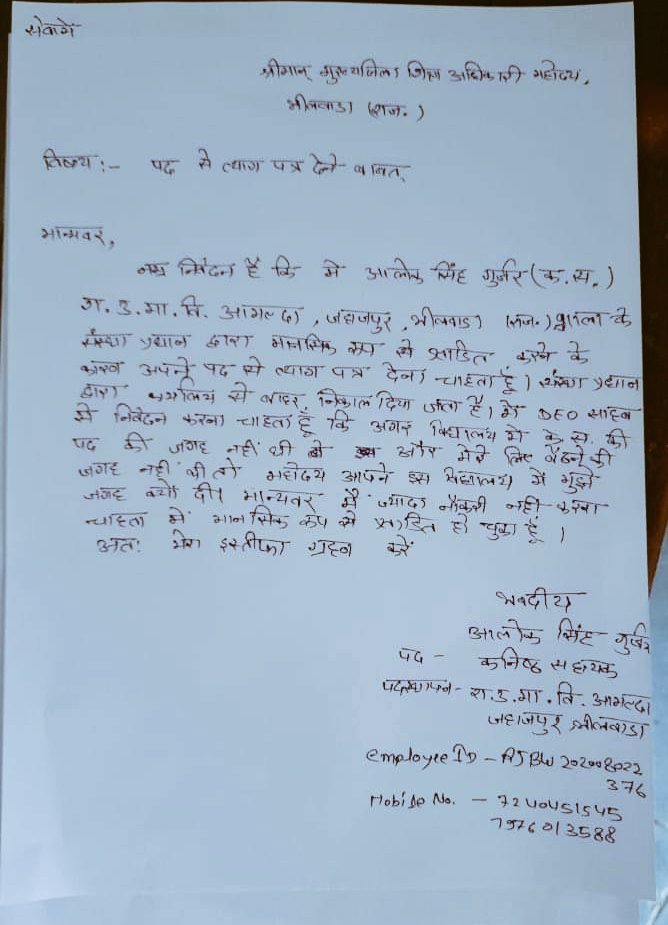 सेवामें
श्रीमान् मुख्य जिला शिक्षा अधिकारी महोदय,
भीलवाडा (राज.)
विषय :- पद से त्याग पत्र देने बाबत्
मान्यवर,
नम्र निवेदन है कि मे आलोक सिंह गुर्जर (क.स.)
रा.उ.मा.वि. आमल्दा, जहाजपुर, भीलवाडा (राज.) शाला के
संस्था प्रधान द्वारा मानसिक रूप से प्रताडित करने के
कारण अपने पद से त्याग पत्र देना चाहता हूँ। संस्था प्रधान
द्वारा कार्यालय से बाहर निकाल दिया जाता है। में DEO साहब
से निवेदन करना चाहता हूँ कि अगर विद्यालय मे क.स. की
पद की जगह नहीं थी और मेरे लिए बैठने की
जगह नहीं थी तो महोदय आपने इस विद्यालय में मुझे
जगह क्यों दी। मान्यवर मैं ज्यादा नौकरी नही करना
चाहता में मानसिक रूप से प्रताडित हो चुका हूँ।
अतः मेरा इस्तीफा ग्रहण करें
भवदीय
आलोक सिंह गुर्जर
पद - कनिष्ठ सहायक
पदस्थापन - रा.उ.मा.वि. आमल्दा
जहाजपुर भीलवाडा
employee ID - RJBW202008022
376
Mobile No. - 7240451545
7976013588